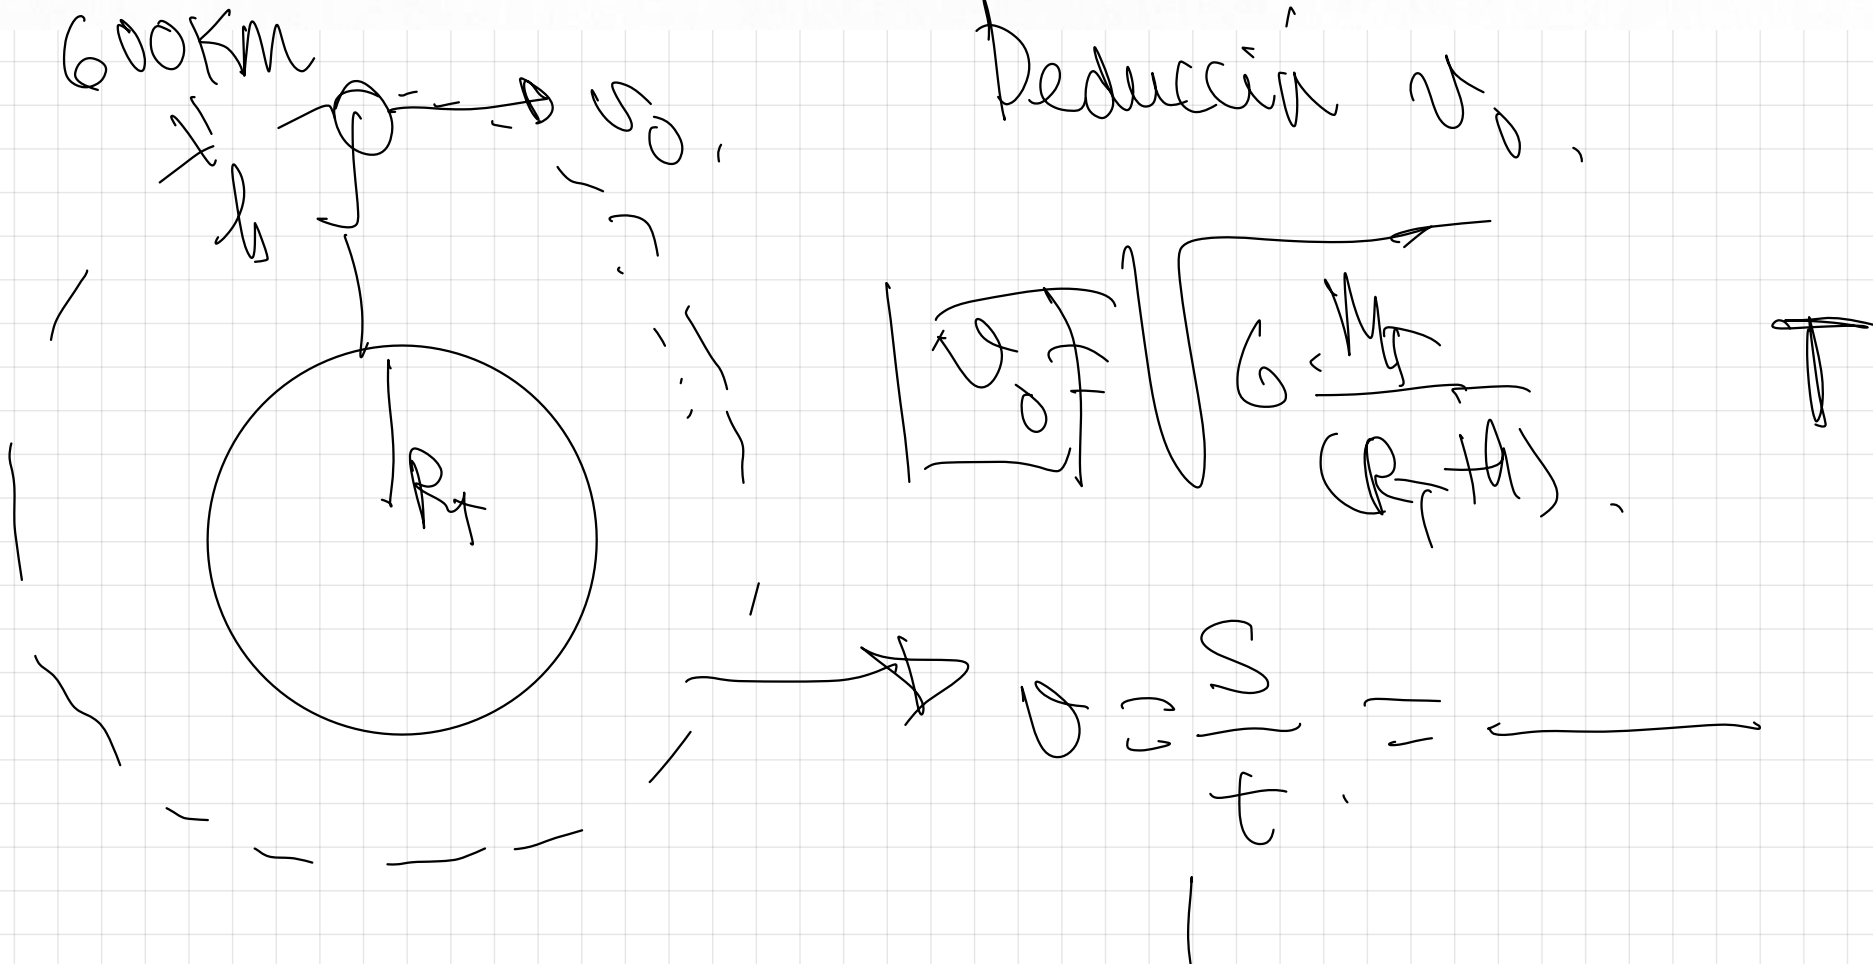 600KM
h
v₀.
R_T
Deducción v₀.
v₀ = √ G · M_T / (R_T + h).
T
v = S / t =